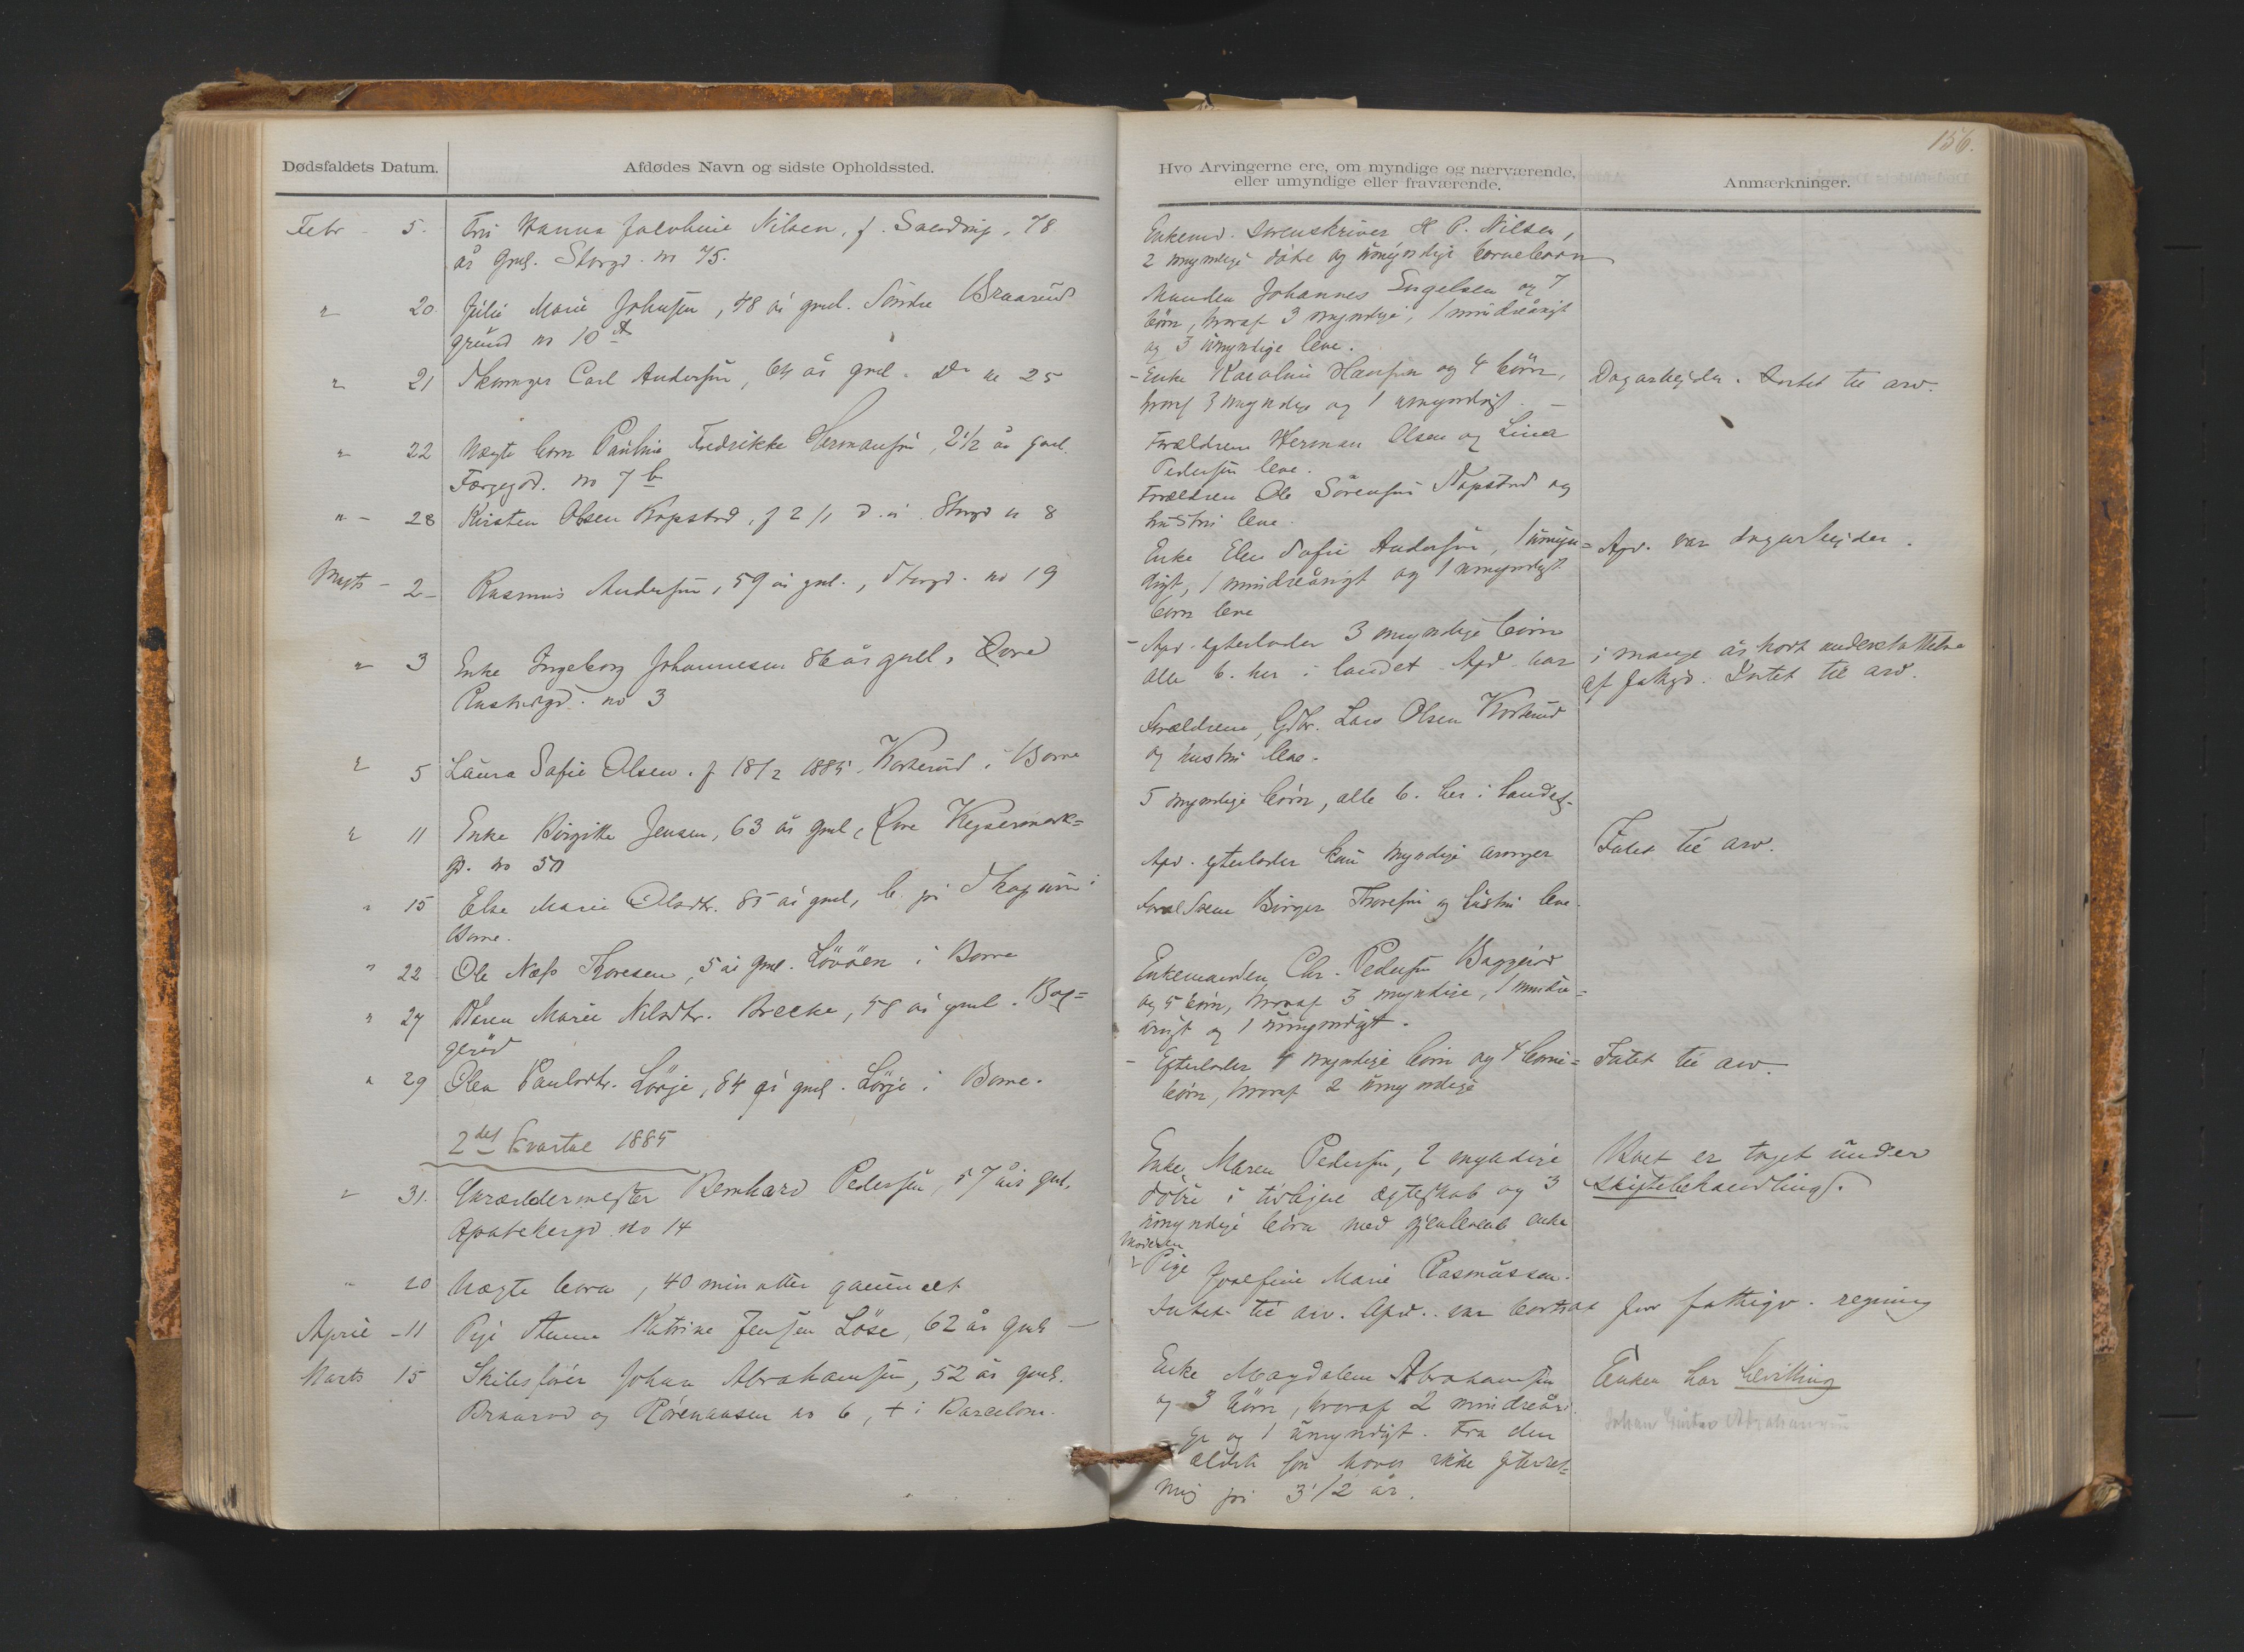 156.
Dødsfaldets Datum.
Afdødes Navn og sidste Opholdssted.
Febr - 5. Fru Hanna Nilsen, f. 78
år gml. Storgd. no 75.
" 20 Julie Marie Johnsen, 48 år gml. Søndre Braarud
grund no 10 A
" 21 Carl Andersen, 64 år gml. Do no 25
" 22 Ægte barn Pauline Fredrikke Hermansen, 2 1/2 år gml.
Farvegd. no 7 b
" - 28 Kirsten Olsen Kopstad, f 2/1 d. å. Storgd no 8
Marts - 2 - Rasmus Andersen, 59 år gml., Storgd. no 19
" 3 Enke Ingeborg Johannesen 86 år gml, Øvre
no 3
" 5 Laura Sofie Olsen. f 18/2 1885. i Borre
" 11 Enke Birgitte Jensen, 63 år gml, Øvre Keysermark=
gd. no
" 15 Else Marie Olsdtr. 85 år gml, b. på Skoppum i
Borre.
" 22 Ole Næss Thoresen, 5 år gml. Løvøen i Borre
" 27 Maren Marie Nilsdtr. Brecke, 58 år gml. Bag=
gerød
" 29 Olea Paulsdtr. Lørje, 84 år gml. Lørje i Borre.
2det Kvartal 1885
" 31. Garvermester Bernhard Pedersen, 57 års gml.
Apothekergd. no 14
" 20 Uægte barn, 40 minutter gammelt
April - 11 Pige Anna Katrine Jensen Løse, 62 år gml -
Marts 15 Skibsfører Johan Abrahamsen, 52 år gml.
Braarud og Rørehausen no 6, + i Barcelona.
Hvo Arvingerne ere, om myndige og nærværende,
eller umyndige eller fraværende.
Anmærkninger.
Enkemd. Sorenskriver H P. Nilsen,
2 myndige døtre og umyndige børnebørn
Manden Johannes Engelsen og 7
børn, hvoraf 3 myndige, 1 mindreårigt
og 3 umyndige leve.
- Enke Karoline Hansen og 4 børn, Dagarbejder. Intet til arv.
hvoraf 3 myndige og 1 umyndigt. -
Forældrene Herman Olsen og Lina
Pedersen leve.
Forældrene Ole Sørensen Kopstad og
hustru leve.
Enke Elen Sofie Andersen, 1 umyn= Afd. var dagarbejder.
digt, 1 mindreårigt og 1 umyndigt
børn leve
- Afd. efterlader 3 myndige børn
alle b. her i landet. Afd. har i mange år havt understøttelse
af fatgd. Intet til arv.
Forældrene, Gdbr. Lars Olsen
og hustru leve.
5 myndige børn, alle b. her i landet.
Afd. efterlader kun myndige arvinger Intet til arv.
Forældrene Børger Thoresen og hustru leve.
Enkemanden Chr. Pedersen Baggerød
og 5 børn, hvoraf 3 myndige, 1 mindre=
årigt og 1 umyndigt.
- Efterlader 4 myndige børn og 4 børne= Intet til arv.
børn, hvoraf 2 umyndige
Enke Maren Pedersen, 2 myndige Boet er taget under
døtre i tidligere ægteskab og 3 skiftebehandling.
umyndige børn med gjenlevende enke
Moderen
Pige Josefine Marie Rasmussen.
Intet til arv. Afd. var bortsat for fattigv. regning
Enke Magdalene Abrahamsen Enken har bevilling
og 3 børn, hvoraf 2 mindreåri Johan Gustav Abrahamsen
ge og 1 umyndigt. Fra den
ældste søn haves ikke efterret=
ning på 3 1/2 år.